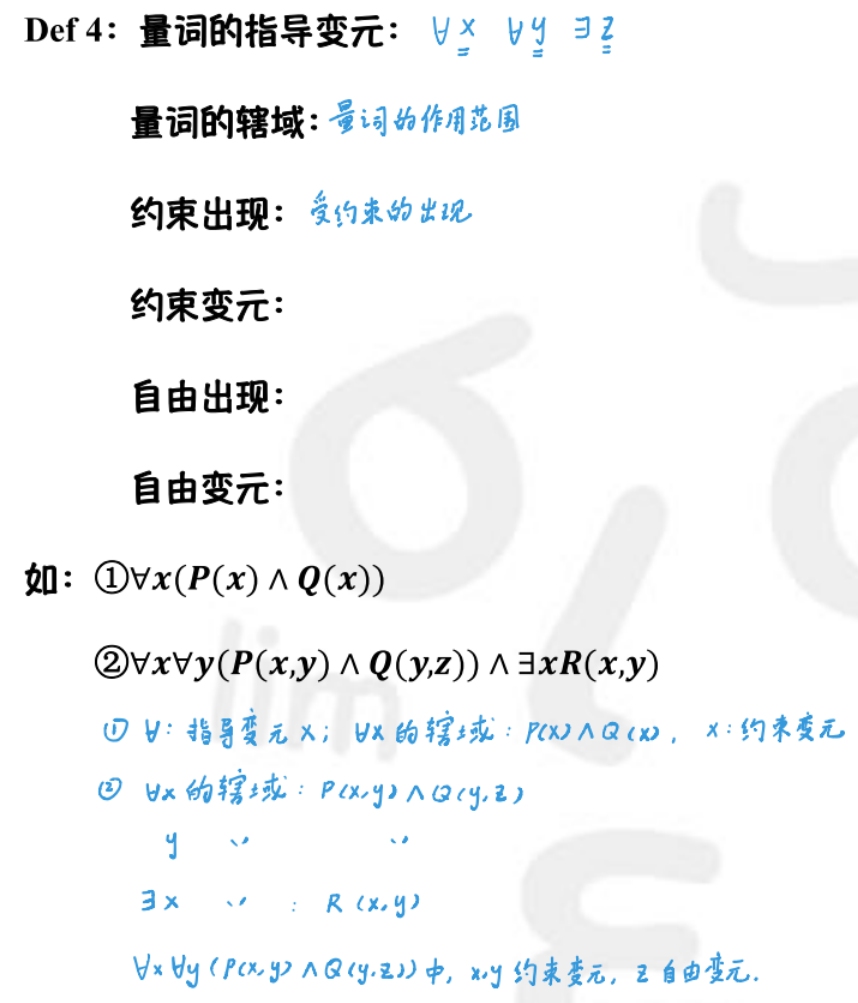 Def 4：量词的指导变元： ∀x ∀y ∃z
量词的辖域：量词的作用范围
约束出现：受约束的出现
约束变元：
自由出现：
自由变元：
如：①∀x(P(x) ∧ Q(x))
②∀x∀y(P(x,y) ∧ Q(y,z)) ∧ ∃xR(x,y)
① ∀：指导变元 x；∀x 的辖域：P(x)∧Q(x)， x：约束变元
② ∀x 的辖域：P(x,y)∧Q(y,z)
y 〃 〃
∃x 〃 ： R(x,y)
∀x∀y(P(x,y)∧Q(y,z))中，x,y 约束变元，z 自由变元.
lim